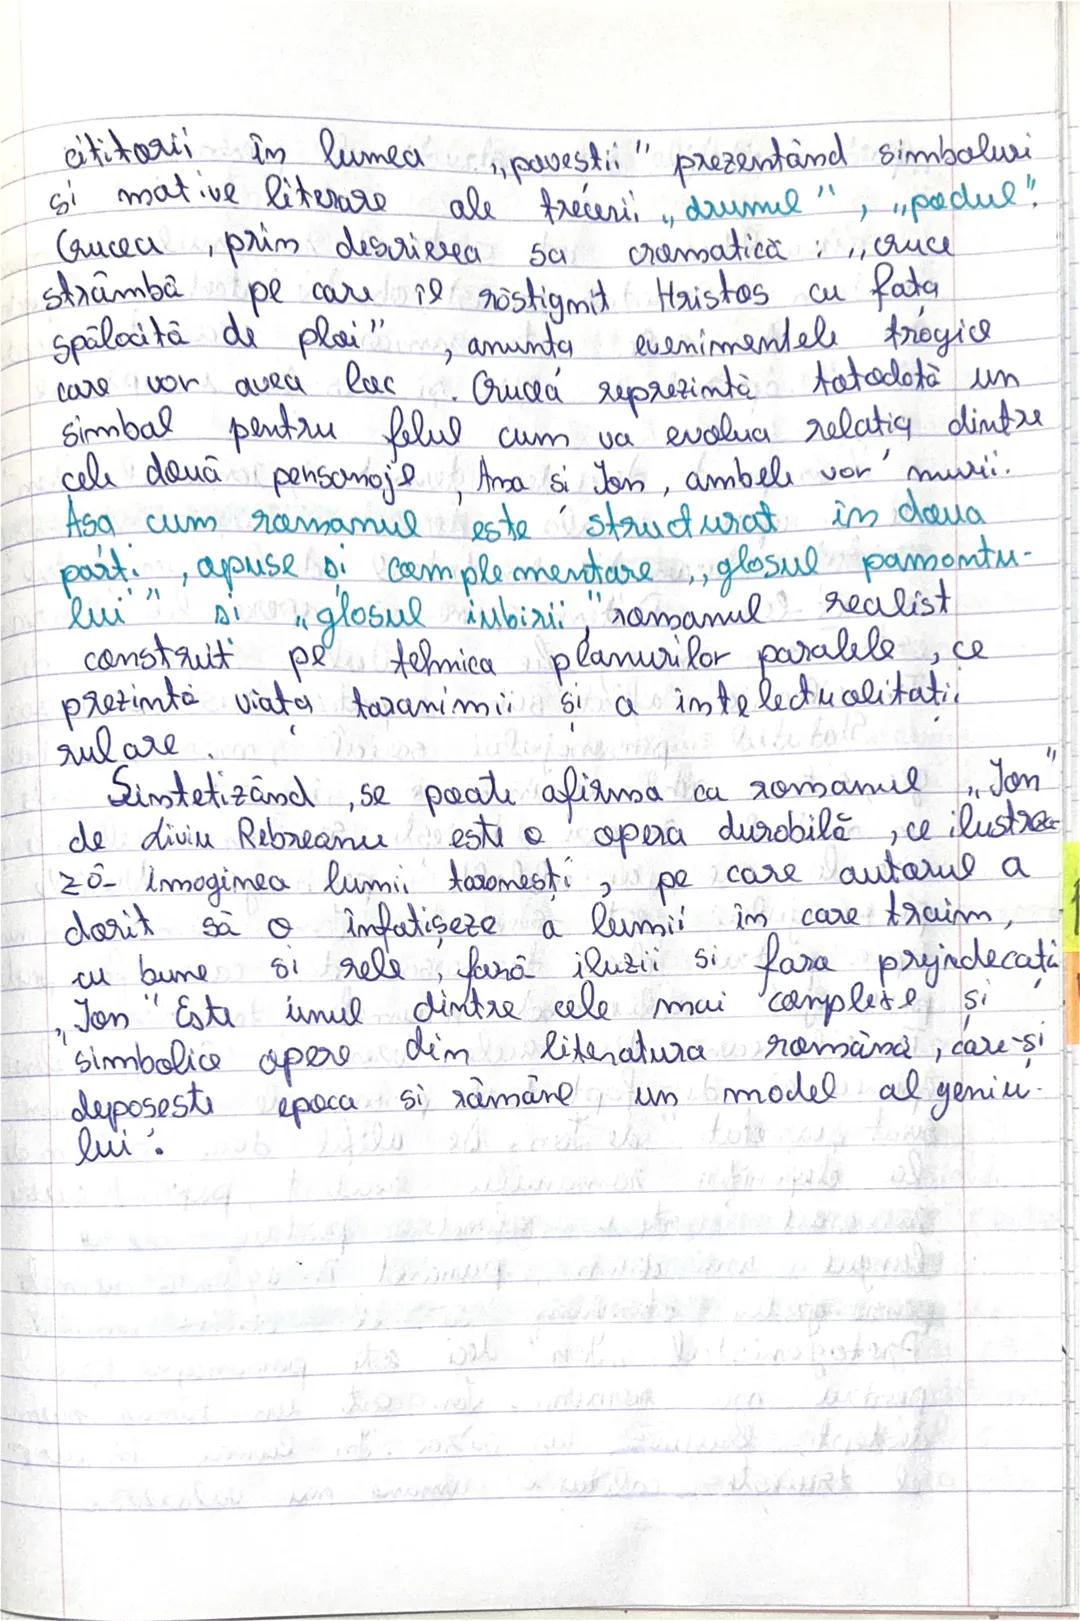 cititorii în lumea „povestii" prezentând simboluri
si motive literare ale trecerii „drumul", „podul".
Crucea, prin descrierea sa cromatică: „cruce
strâmbă pe care il răstignit Hristos cu fața
spălăcită de ploi", anunta evenimentele tragice
care vor avea loc. Crucea reprezintă totodată un
simbol pentru felul cum va evolua relația dintre
cele două personaje, Ana si Ion, ambele vor murii.
Asa cum romanul este structurat in doua
parti, opuse și complementare „glasul pamontu-
lui" și „glasul iubirii", romanul realist
construit pe tehnica planurilor paralele, ce
prezintă viața taranimii și a intelectualitatii
rulare.
Sintetizând, se poate afirma ca romanul „Ion"
de Liviu Rebreanu este o opera durabilă, ce ilustrea-
ză imaginea lumii taranești, pe care autorul a
dorit să o înfatișeze a lumii în care traim,
cu bune si rele, fară iluzii si fara prejudecati
„Ion" Este unul dintre cele mai complexe și
simbolice opere din literatura română, care-și
depaseste epoca si rămâne un model al geniu-
lui.